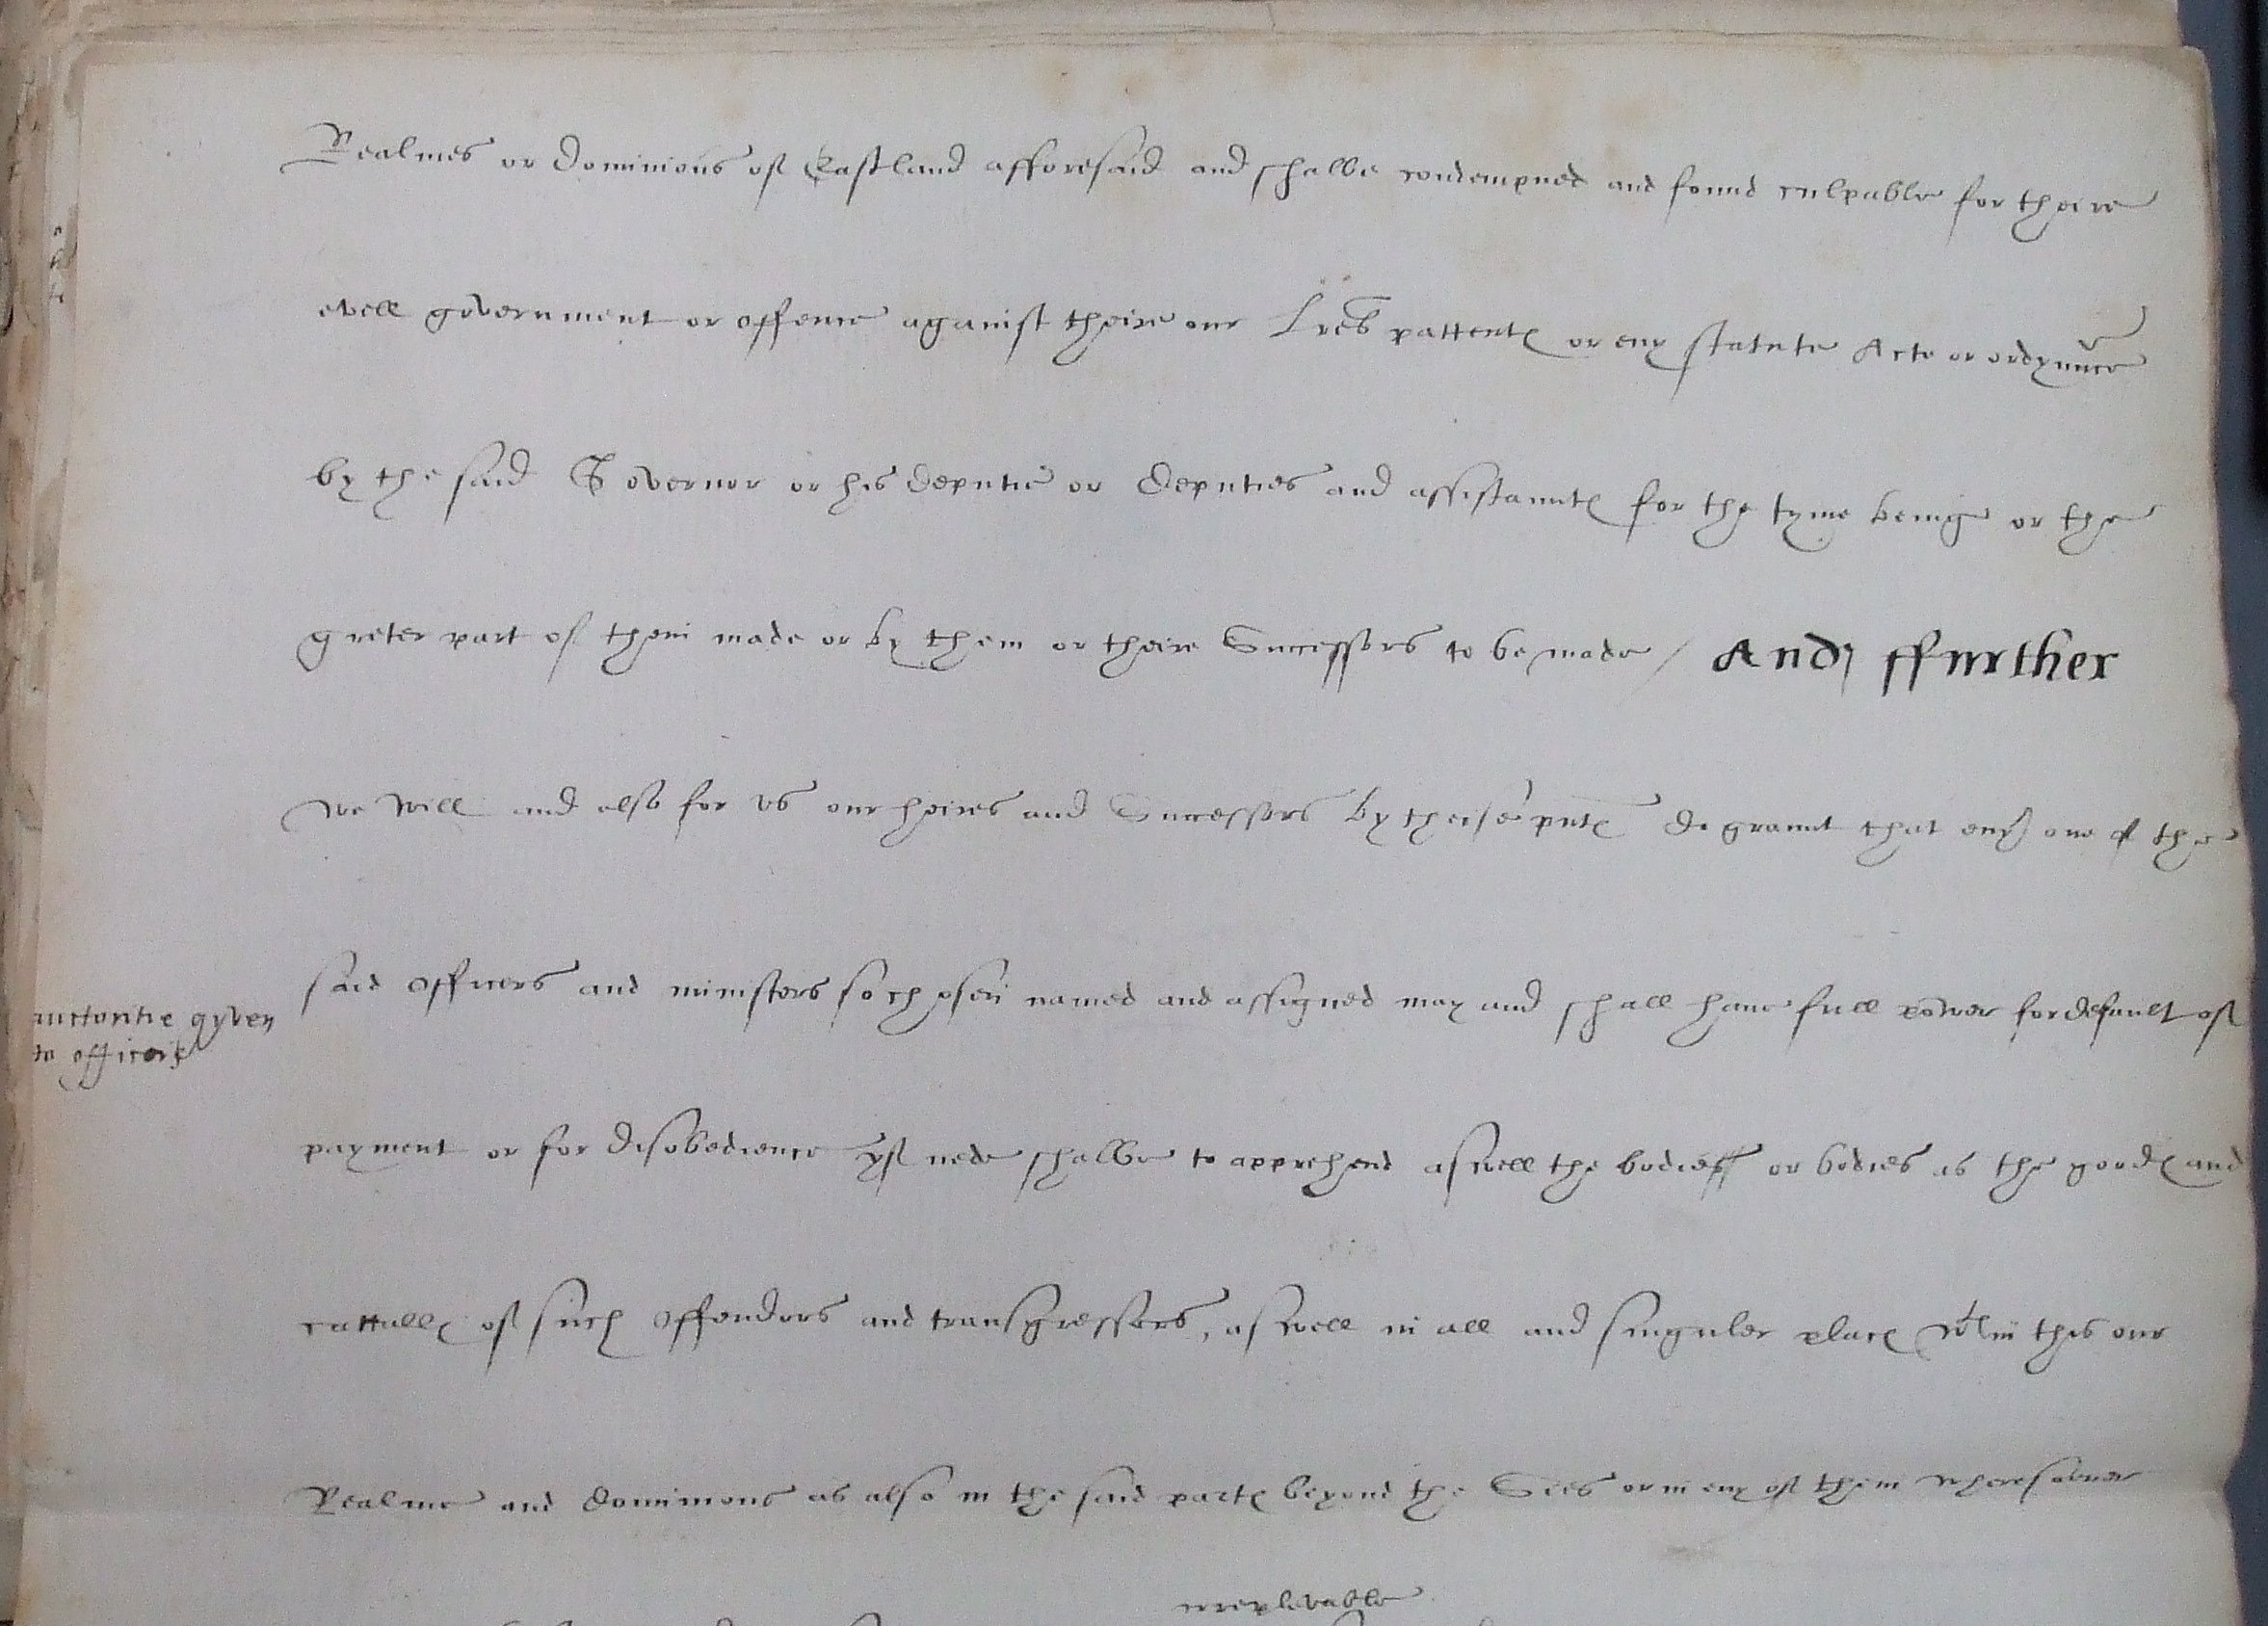 Realmes or Dominions of Eastland afforesaid and shalbe condempned and found culpable for theire
evell government or offence against theise our Lres pattentes or eny statute Acte or ordynnce
by the said Governor or his deputie or deputies and assistauntes for the tyme being or the
greter part of them made or by them or theire Successors to be made / And ffurther
we will and also for vs our heires and Successors by theise pntes do graunt that eny one of the
said Officers and ministers so chosen named and assigned may and shall haue full power for default of
auctoritie gyven
to officers
payment or for disobedience yf nede shalbe to apprehend aswell the bodies or bodies as the goodes and
cattalles of such Offendors and transgressors, aswell in all and singuler places wthin this our
Realme and dominions as also in the said partes beyond the Sees or in eny of them wheresoever
irreplevable